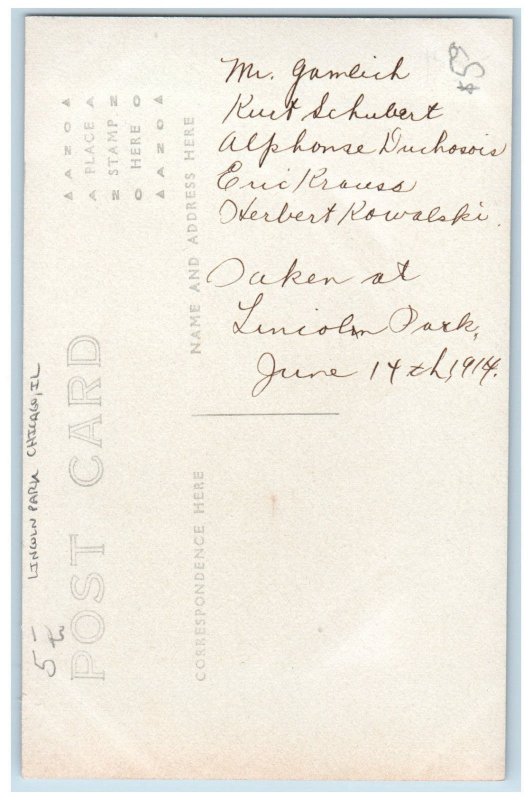 Mr. Gamlich
Kurt Schubert
Alphonse Duchosois
Eric Krauss
Herbert Kowalski.
Taken at
Lincoln Park,
June 14th, 1914.
POST CARD
NAME AND ADDRESS HERE
CORRESPONDENCE HERE
AZOA
PLACE
STAMP
HERE
AZOA
LINCOLN PARK CHICAGO, IL
5-